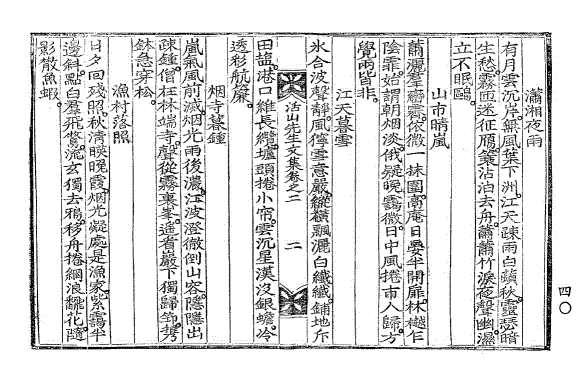 瀟湘夜雨
有月雲沉岸無風葉下洲江天疎雨白蘋秋靈瑟暗
生愁霧匝迷征鴈篷沾泊去舟蕭蕭竹淚夜聲幽濕
立不眠鷗
山市晴嵐
蕭灑羣巒霽依微一抹圍高庵日晏半開扉林樾乍
陰霏始謂朝烟淡俄疑晩靄微日中風捲市人歸方
覺兩皆非
江天暮雪
氷合波聲靜風獰雪意嚴縱橫飄灑白纖纖鋪地斥
田鹽港口維長纜壚頭捲小帘雲沉星漢沒銀蟾冷
透彩航簾
烟寺暮鐘
嵐氣風前滅烟光雨後濃江波澄徹倒山容隱隱出
疎鍾僧在林端寺聲從霧裏峯遙省巖下獨歸筇考
鉢急穿松
漁村落照
日夕回殘照秋淸映晩霞烟光凝處是漁家紫靄半
邊斜點白羣飛鷺流玄獨去鴉移舟捲網浪翻花隨
影散魚蝦
活山先生文集卷之二
二
四〇